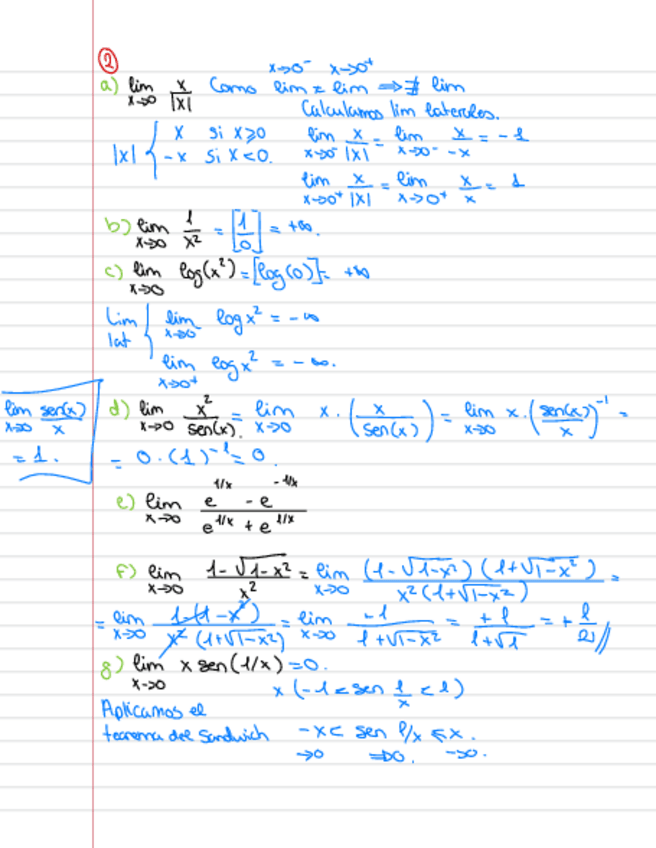 ②
x→0⁻ x→0⁺
a) lim x→0 x/|x| Como lim ≠ lim ⟹ ∄ lim
Calculamos lim laterales.
|x| { x si x⩾0 lim x→0⁻ x/|x| = lim x→0⁻ x/-x = -1
-x si x<0.
lim x→0⁺ x/|x| = lim x→0⁺ x/x = 1
b) lim x→0 1/x² = [1/0] = +∞.
c) lim x→0 log(x²) = [log(0)] = +∞
Lim lat { lim x→0⁻ log x² = -∞
lim x→0⁺ log x² = -∞.
lim x→0 sen(x)/x = 1.
d) lim x→0 x²/sen(x) = lim x→0 x · (x/sen(x)) = lim x→0 x · (sen(x)/x)⁻¹ =
= 0 · (1)⁻¹ = 0.
e) lim x→0 (e^(1/x) - e^(-1/x))/(e^(1/x) + e^(1/x))
f) lim x→0 (1-√(1-x²))/x² = lim x→0 ((1-√(1-x²))(1+√(1-x²)))/(x²(1+√(1-x²))) =
= lim x→0 (1-(1-x²))/(x²(1+√(1-x²))) = lim x→0 -1/(1+√(1-x²)) = +1/(1+√1) = +1/2//
g) lim x→0 x sen(1/x) = 0.
x (-1 < sen 1/x < 1)
Aplicamos el
teorema del Sandwich -x < sen 1/x < x.
→0 ⇒0. →0.